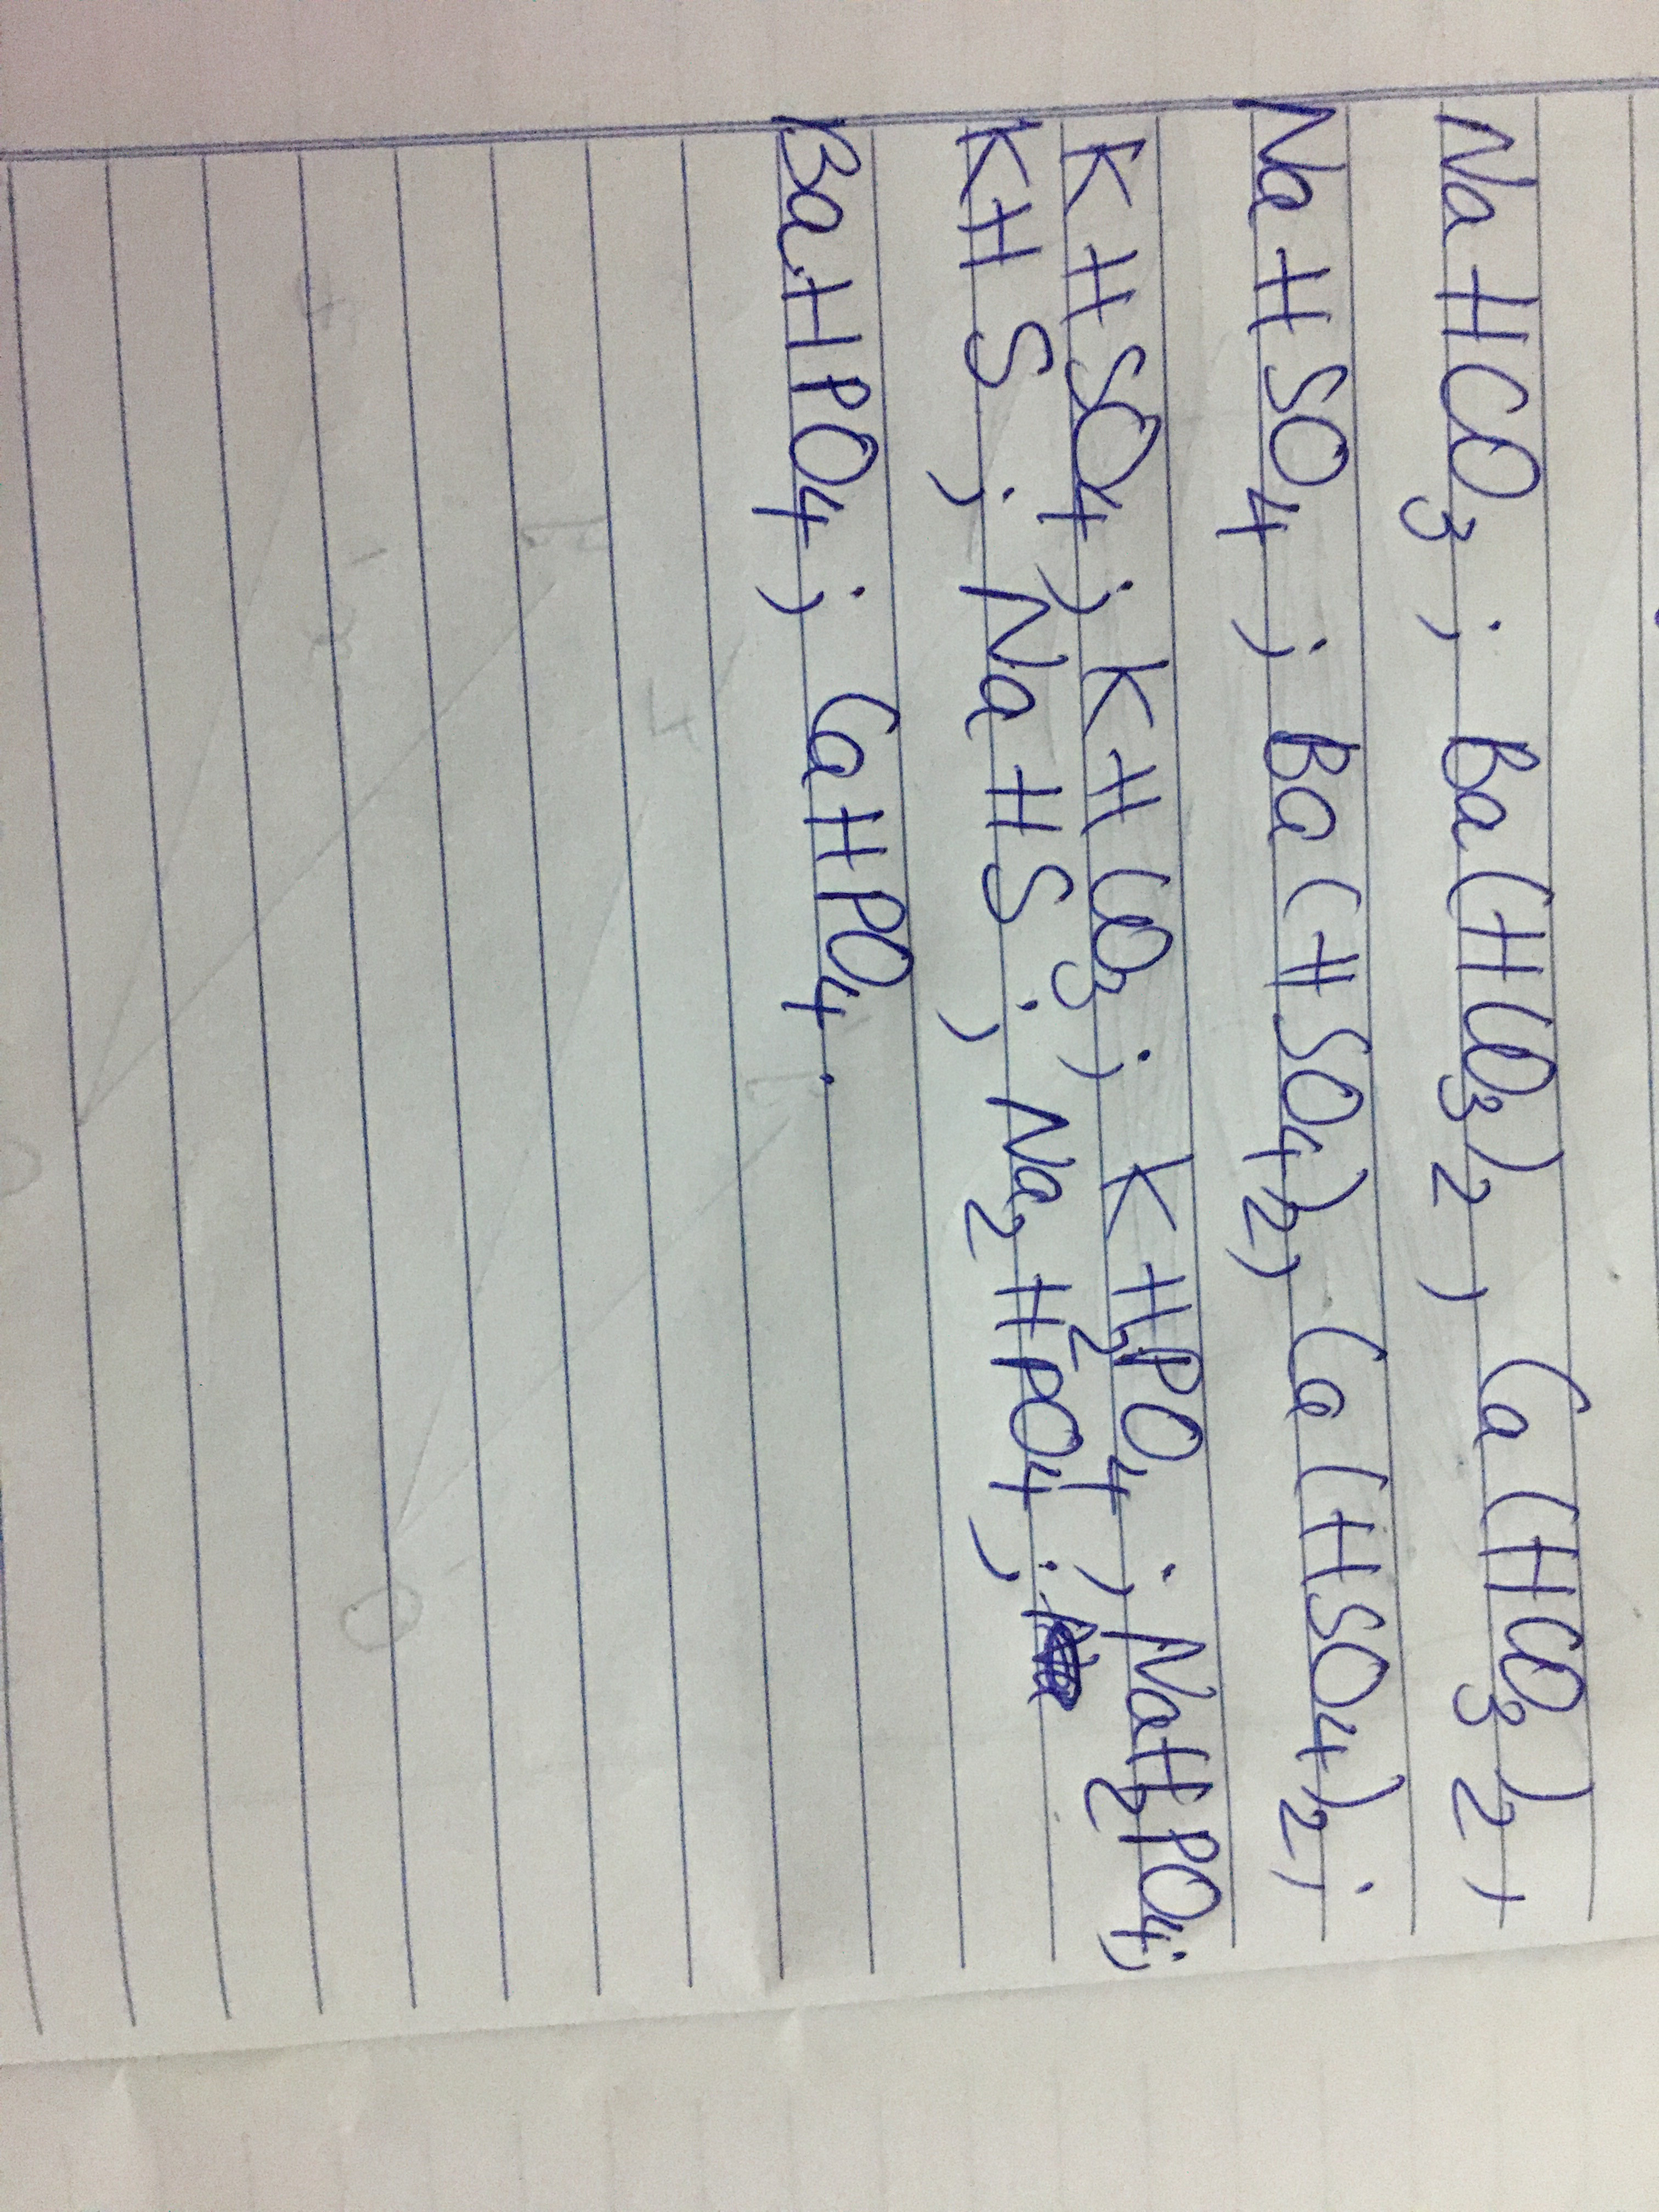 NaHCO3; Ba(HCO3)2, Ca(HCO3)2,
NaHSO4; Ba(HSO4)2, Ca(HSO4)2;
KHSO4; KHCO3; KH2PO4; NaH2PO4;
KHS; NaHS; Na2HPO4;
BaHPO4; CaHPO4.